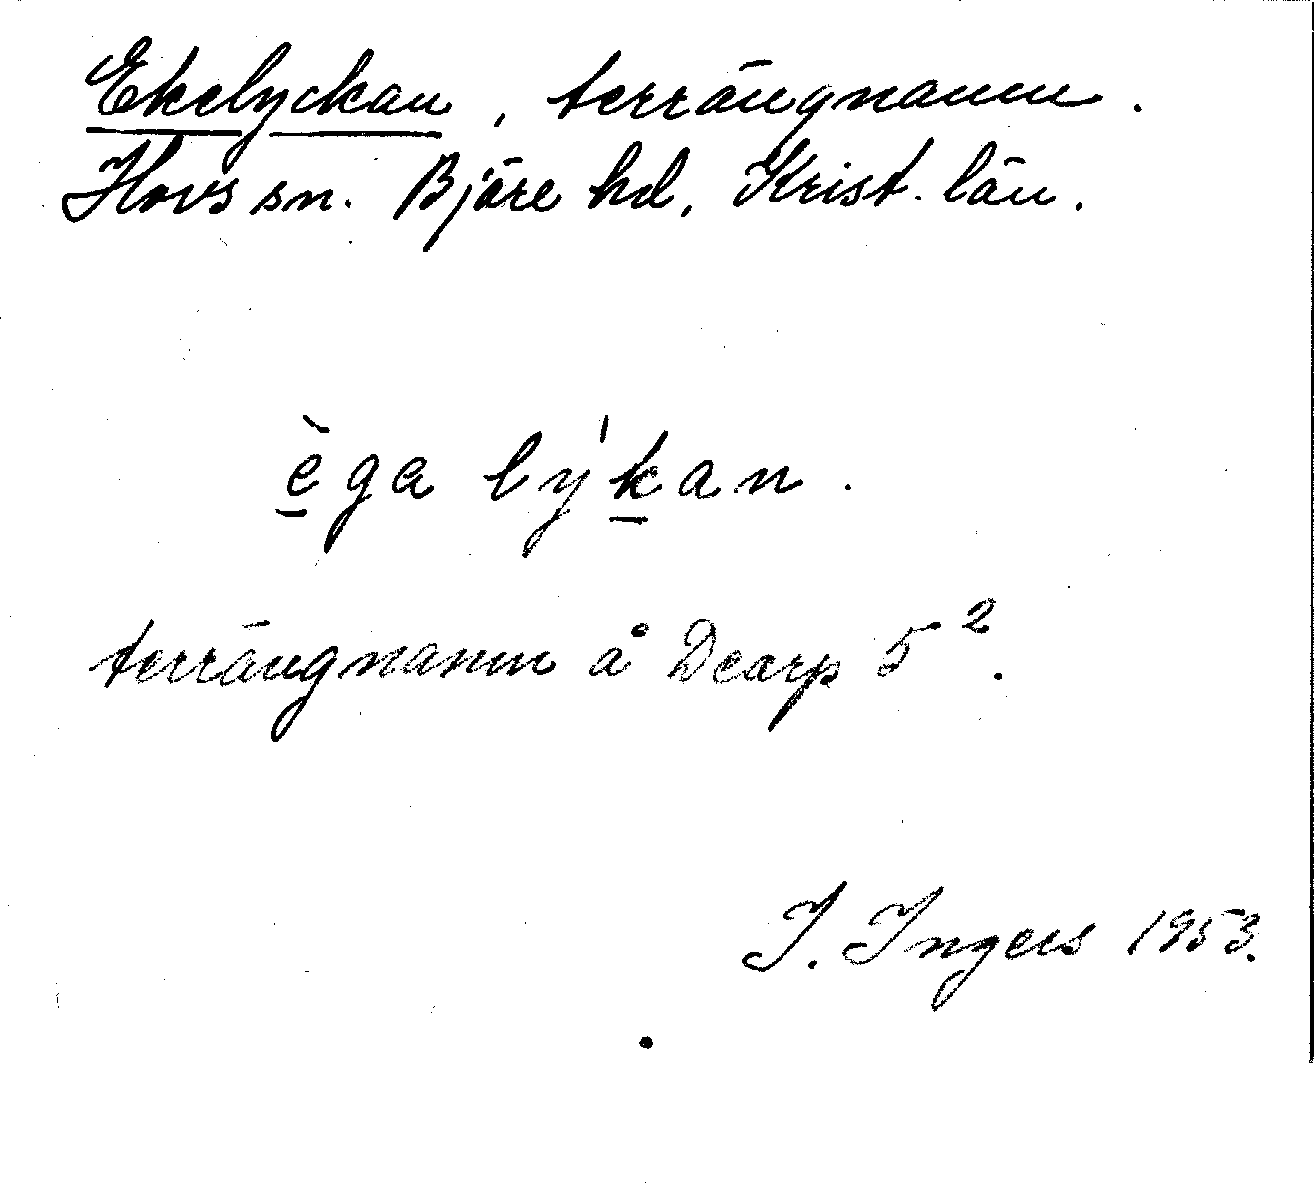 Ekelyckan, terrängnamn.
Hovs sn. Bjäre hd, Krist. län.
èga lýkan.
terrängnamn å Dearp 5².
I. Ingers 1953.